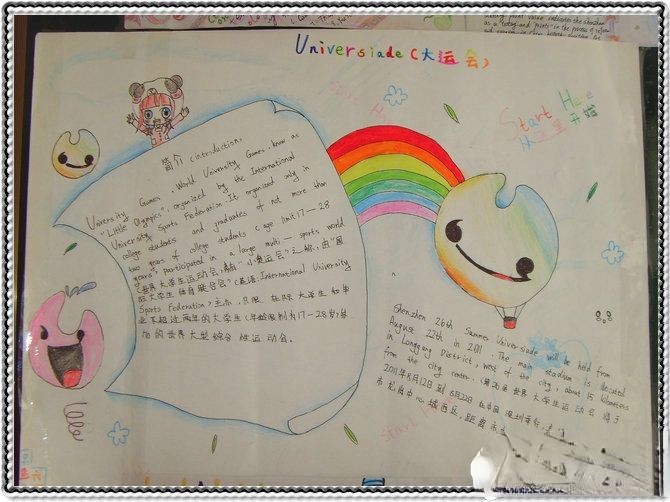 Universiade (大运会)
Start Here
从这里开始
简介 (introduction)
University Games, World University Games, know as
"Little Olympics", organized by the International
University Sports Federation. It organized only in
college students and graduates of not more than
two years of college students (age limit 17—28
years, participated in a large multi—sports world
(世界大学生运动会, 素有"小奥运会"之称, 由"国
际大学生体育联合会"(英语: International University
Sports Federation) 主办, 只限在校大学生和毕
业不超过两年的大学生(年龄限制为17—28岁)参
加的世界大型综合性运动会.
Shenzhen 26th Summer Universiade will be held from
August 12th in 2011. The main stadium is located
in Longgang District, west of the city, about 15 kilometers
from the city center. (第26届世界大学生运动会将于
2011年8月12日到8月23日在中国深圳举行,
市龙岗中心城西区, 距离市
Start